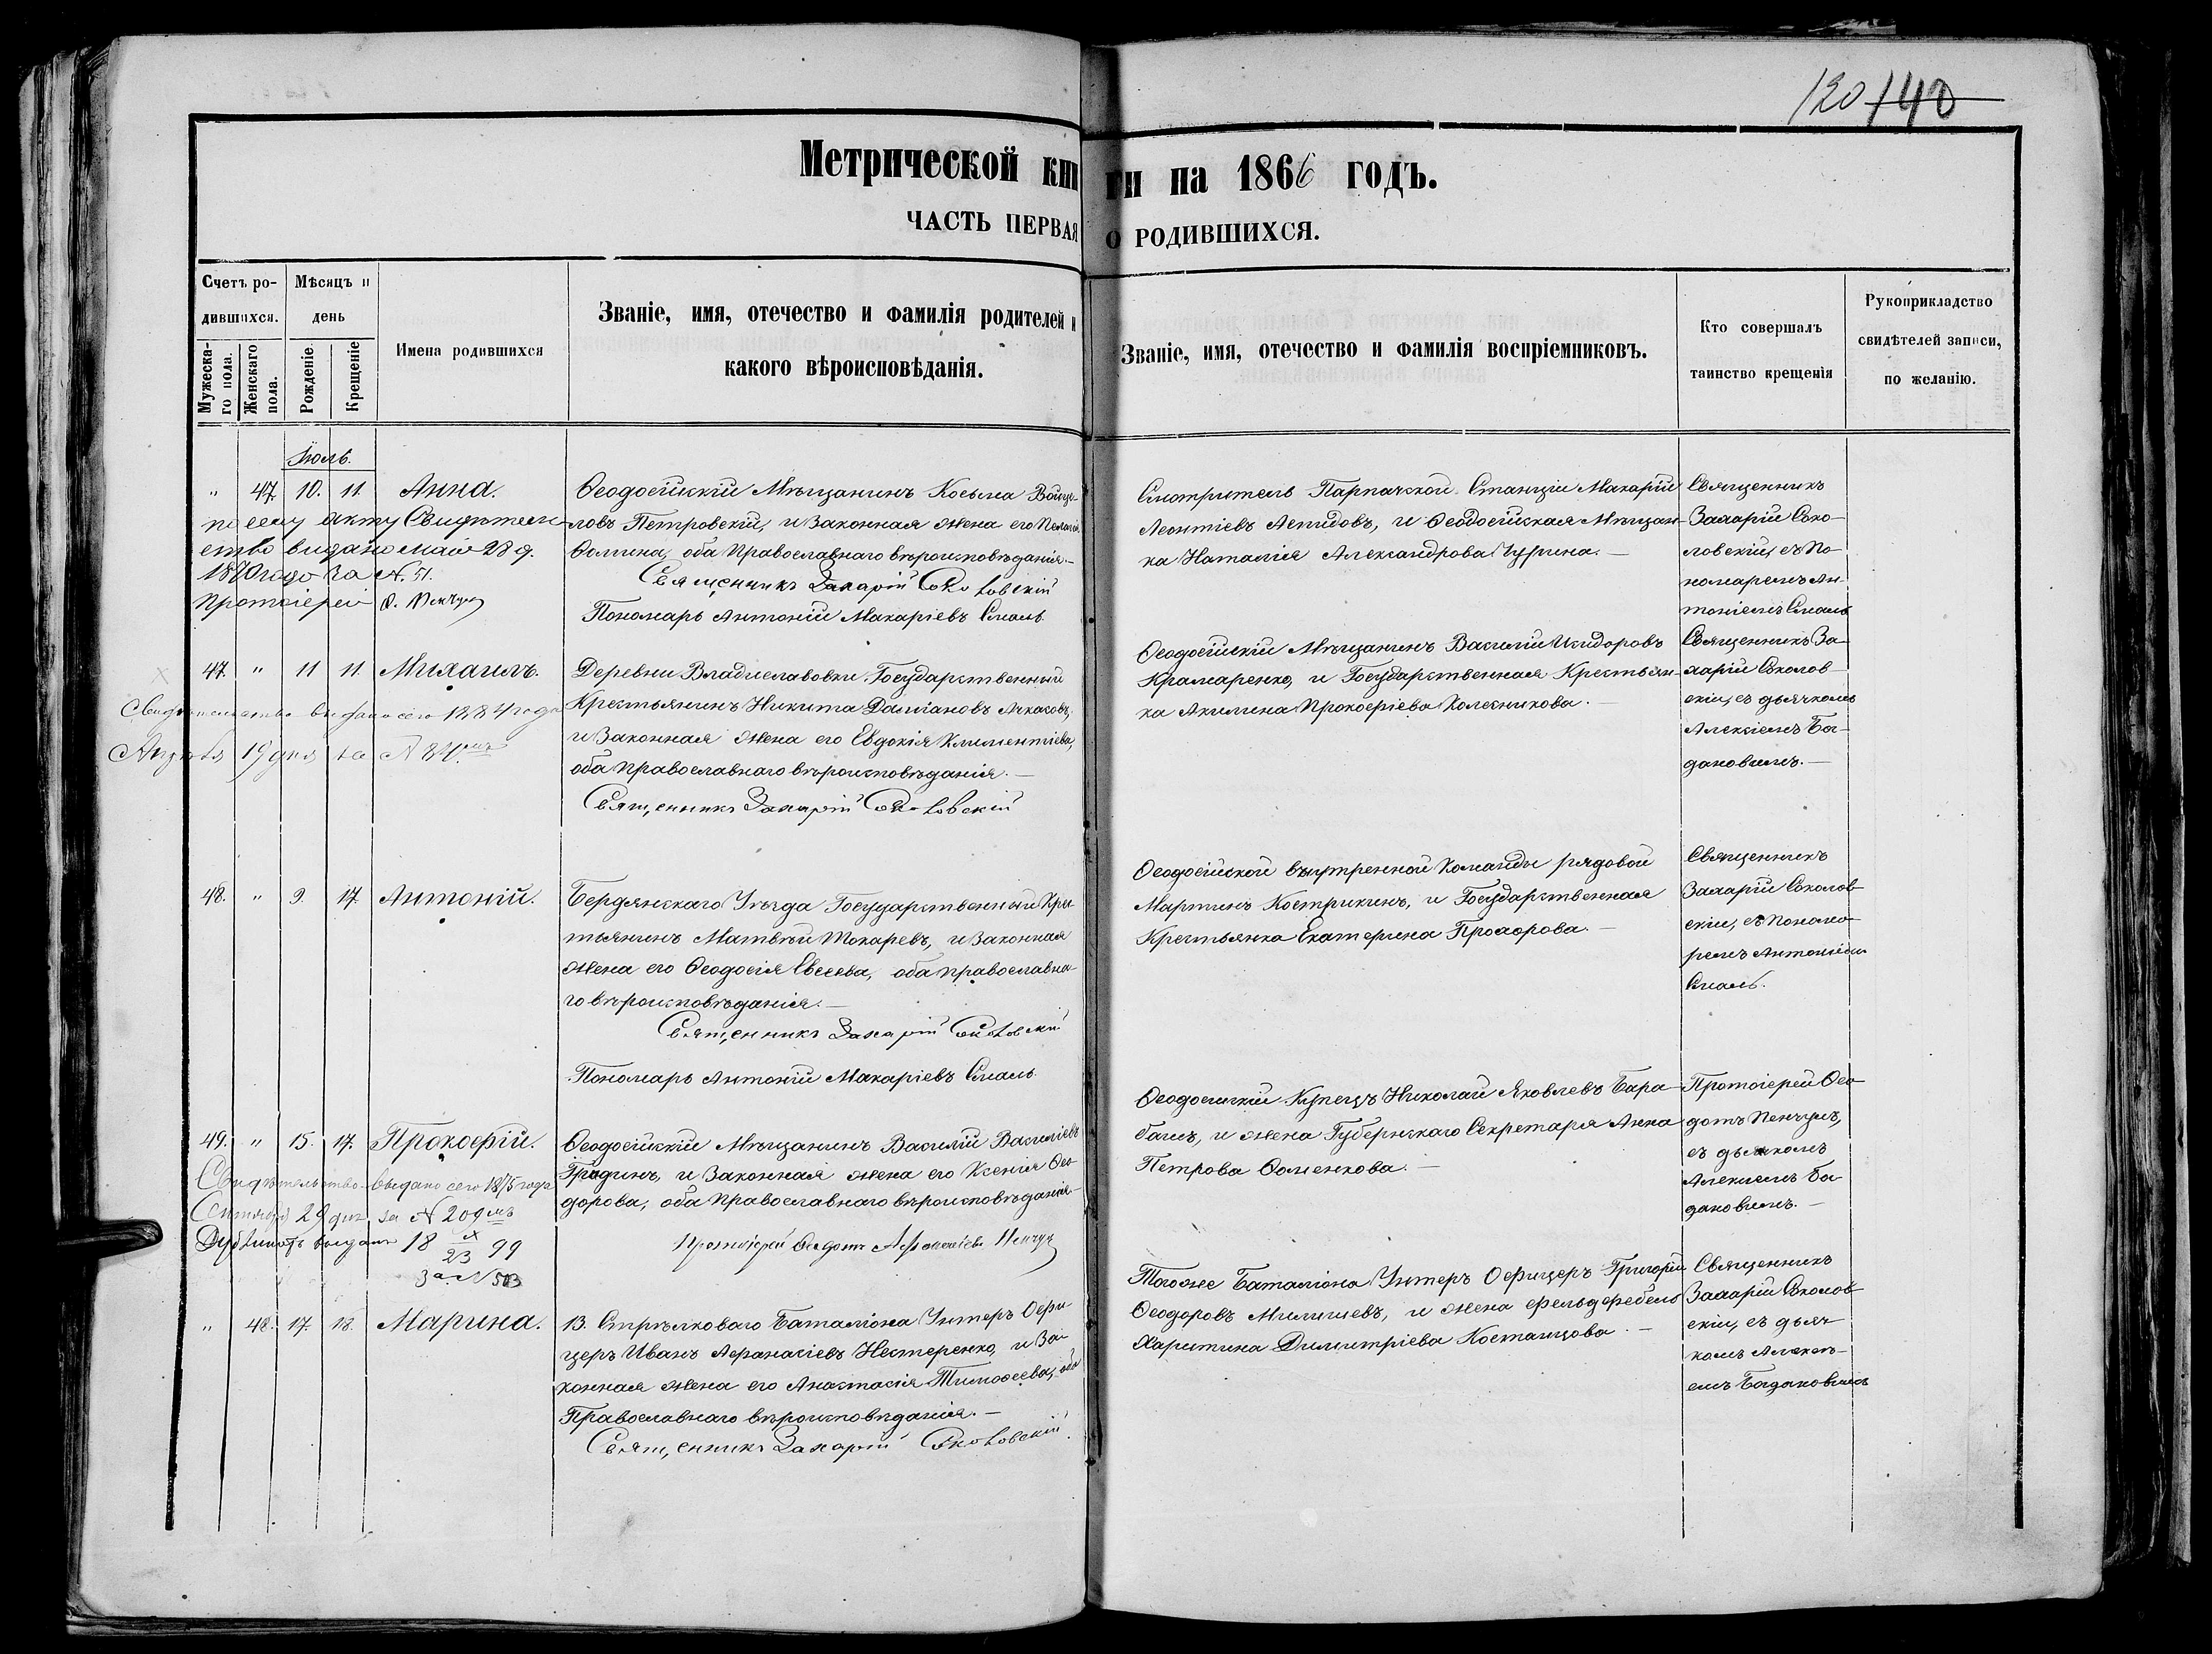 120 140
Метрической книги на 1866 годъ.
ЧАСТЬ ПЕРВАЯ О РОДИВШИХСЯ.
Счетъ родившихся.
Мужескаго пола.
Женскаго пола.
Мѣсяцъ и день
Рожденіе.
Крещеніе
Имена родившихся
Званіе, имя, отечество и фамилія родителей и
какого вѣроисповѣданія.
Званіе, имя, отечество и фамилія воспріемниковъ.
Кто совершалъ
таинство крещенія
Рукоприкладство
свидѣтелей записи,
по желанію.
Іюль.
" 47. 10. 11. Анна.
по сему акту Свидѣтель-
ство видано мая 28 д.
1870 года за N. 51.
Протоіерей
Ѳеодосійскій Мѣщанинъ Косьма
ловъ Петровскій, и Законная жена его
Ѳомина, оба Православнаго вѣроисповѣданія.—
Священникъ Захарій Соколовскій
Пономарь Антоній Макаріевъ Смаль.
Смотритель Парпачской Станціи Макарій
Леонтіевъ Лепидовъ, и Ѳеодосійская Мѣщан-
ка Наталія Александрова —
Священникъ
Захарій Соко-
ловскій, съ По-
номаремъ Ан-
тоніемъ Смаль
47. " 11 11. Михаилъ.
Свидѣтельство выдано сего 1884 года
19 дня за N 84.
Деревни Владиславовки Государственный
Крестьянинъ Никита Даміановъ
и Законная жена его Евдокія Климентіева,
оба Православнаго вѣроисповѣданія.—
Священникъ Захарій Соколовскій
Ѳеодосійскій Мѣщанинъ Василій Исидоровъ
Крамаренко, и Государственная Крестьян-
ка Акилина Прокофіева Колесникова.—
Священникъ За-
харій Соколов-
скій, съ дьячкомъ
Алексіемъ Бог-
дановымъ.—
48. " 9. 17. Антоній.
Бердянскаго Уѣзда Государственный Крес-
тьянинъ Матвѣй Токаревъ, и Законная
жена его Ѳеодосія Евсеева, оба православна-
го вѣроисповѣданія.—
Священникъ Захарій Соколовскій
Пономарь Антоній Макаріевъ Смаль.
Ѳеодосійской внутренной Команды рядовой
Мартинъ Кострикинъ, и Государственная
Крестьянка Екатерина Прохорова.—
Священникъ
Захарій Соколов-
скій, съ Понома-
ремъ Антоніемъ
Смаль.
49. " 15. 17. Прокофій.
Свидѣтельство выдано сего 1875 года
Сентября 29 дня за N 209
Дубликатъ выданъ 18 IX/23 99
За N 503
Ѳеодосійскій Мѣщанинъ Василій Василіевъ
Градинъ, и Законная жена его Ксенія Ѳео-
дорова, оба Православнаго вѣроисповѣданія.—
Протоіерей Ѳеодотъ Пенчулъ
Ѳеодосійскій Купецъ Николай Яковлевъ Бара-
башъ, и жена Губернскаго Секретаря Анна
Петрова Ѳоменкова.—
Протоіерей Ѳео-
дотъ Пенчулъ,
съ дьячкомъ
Алексіемъ Бог-
дановымъ.—
" 48. 17. 18. Марина.
13. Стрѣлковаго Баталіона Унтеръ Офи-
церъ Иванъ Афанасіевъ Нестеренко, и За-
конная жена его Анастасія Тимоѳеева, оба
Православнаго вѣроисповѣданія.—
Священникъ Захарій Соколовскій.
Тогоже Баталіона Унтеръ Офицеръ Григорій
Ѳеодоровъ Милишевъ, и жена фельдфебеля
Харитина Димитріева Костанцова.—
Священникъ
Захарій Соколов-
скій, съ дьяч-
комъ Алексі-
емъ Богдановымъ